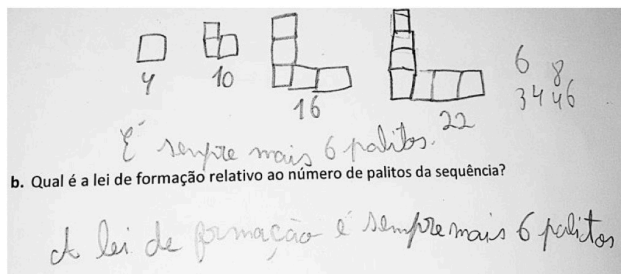 4 10 16 22
6 8
34 46
É sempre mais 6 palitos.
b. Qual é a lei de formação relativo ao número de palitos da sequência?
A lei de formação é sempre mais 6 palitos